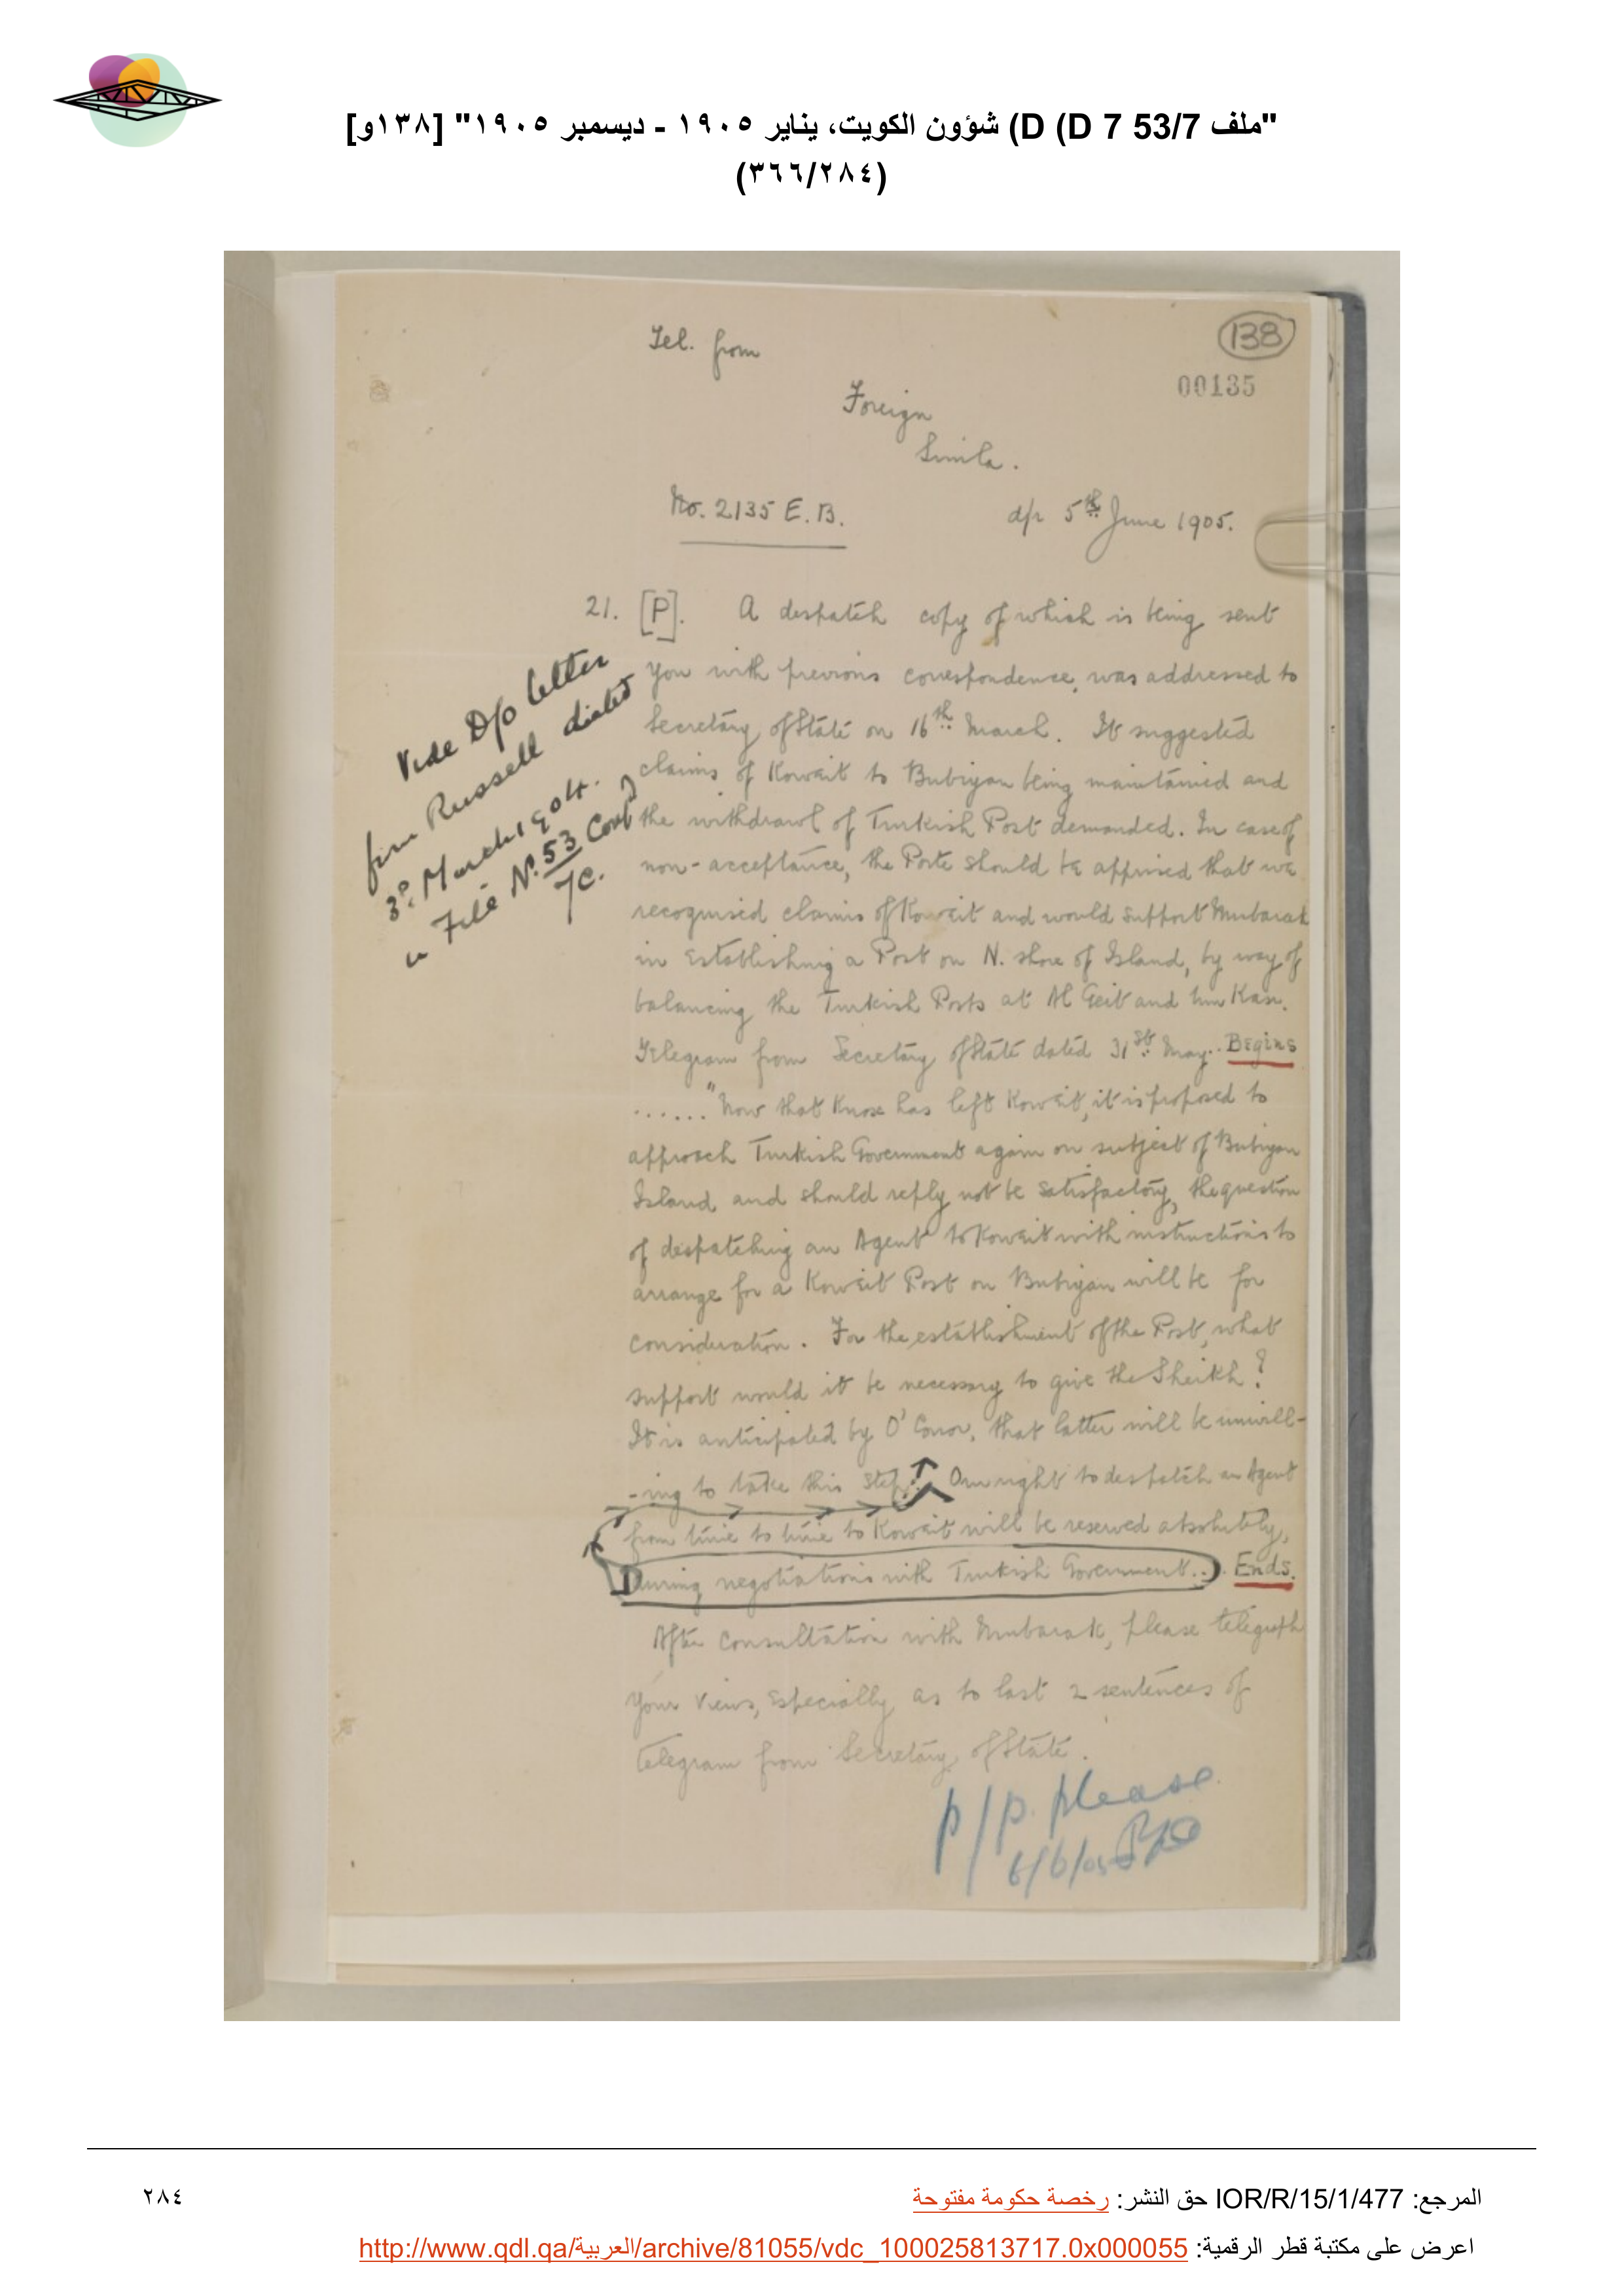 "ملف 53/7 D 7 D) شؤون الكويت، يناير ١٩٠٥ - ديسمبر ١٩٠٥" [١٣٨و]
(٣٦٦/٢٨٤)
138
00135
Tel. from
Foreign
Simla.
No. 2135 E.B.
d/- 5th June 1905.
21. [P]. A despatch copy of which is being sent
you with previous correspondence, was addressed to
Secretary of State on 16th March. It suggested
claims of Koweit to Bubiyan being maintained and
the withdrawl of Turkish Post demanded. In case of
non-acceptance, the Porte should be apprised that we
recognised claims of Koweit and would support Mubarak
in establishing a Post on N. shore of Island, by way of
balancing the Turkish Posts at Al Geit and Um Kasr.
Telegram from Secretary of State dated 31st May. Begins
......"Now that Knox has left Koweit, it is proposed to
approach Turkish Government again on subject of Bubiyan
Island, and should reply not be satisfactory, the question
of despatching an Agent to Koweit with instructions to
arrange for a Koweit Post on Bubiyan will be for
consideration. For the establishment of the Post, what
support would it be necessary to give the Sheikh?
It is anticipated by O'Conor, that latter will be unwill-
-ing to take this step. Our right to despatch an Agent
from time to time to Koweit will be reserved absolutely,
During negotiations with Turkish Government..). Ends.
After consultation with Mubarak, please telegraph
your views, especially as to last 2 sentences of
telegram from Secretary of State.
Vide D/o letter
from Russell dated
3rd March 1904.
in File No. 53 Conf
7C.
p/p. please
6/6/05
المرجع: IOR/R/15/1/477 حق النشر: رخصة حكومة مفتوحة
٢٨٤
اعرض على مكتبة قطر الرقمية: http://www.qdl.qa/العربية/archive/81055/vdc_100025813717.0x000055